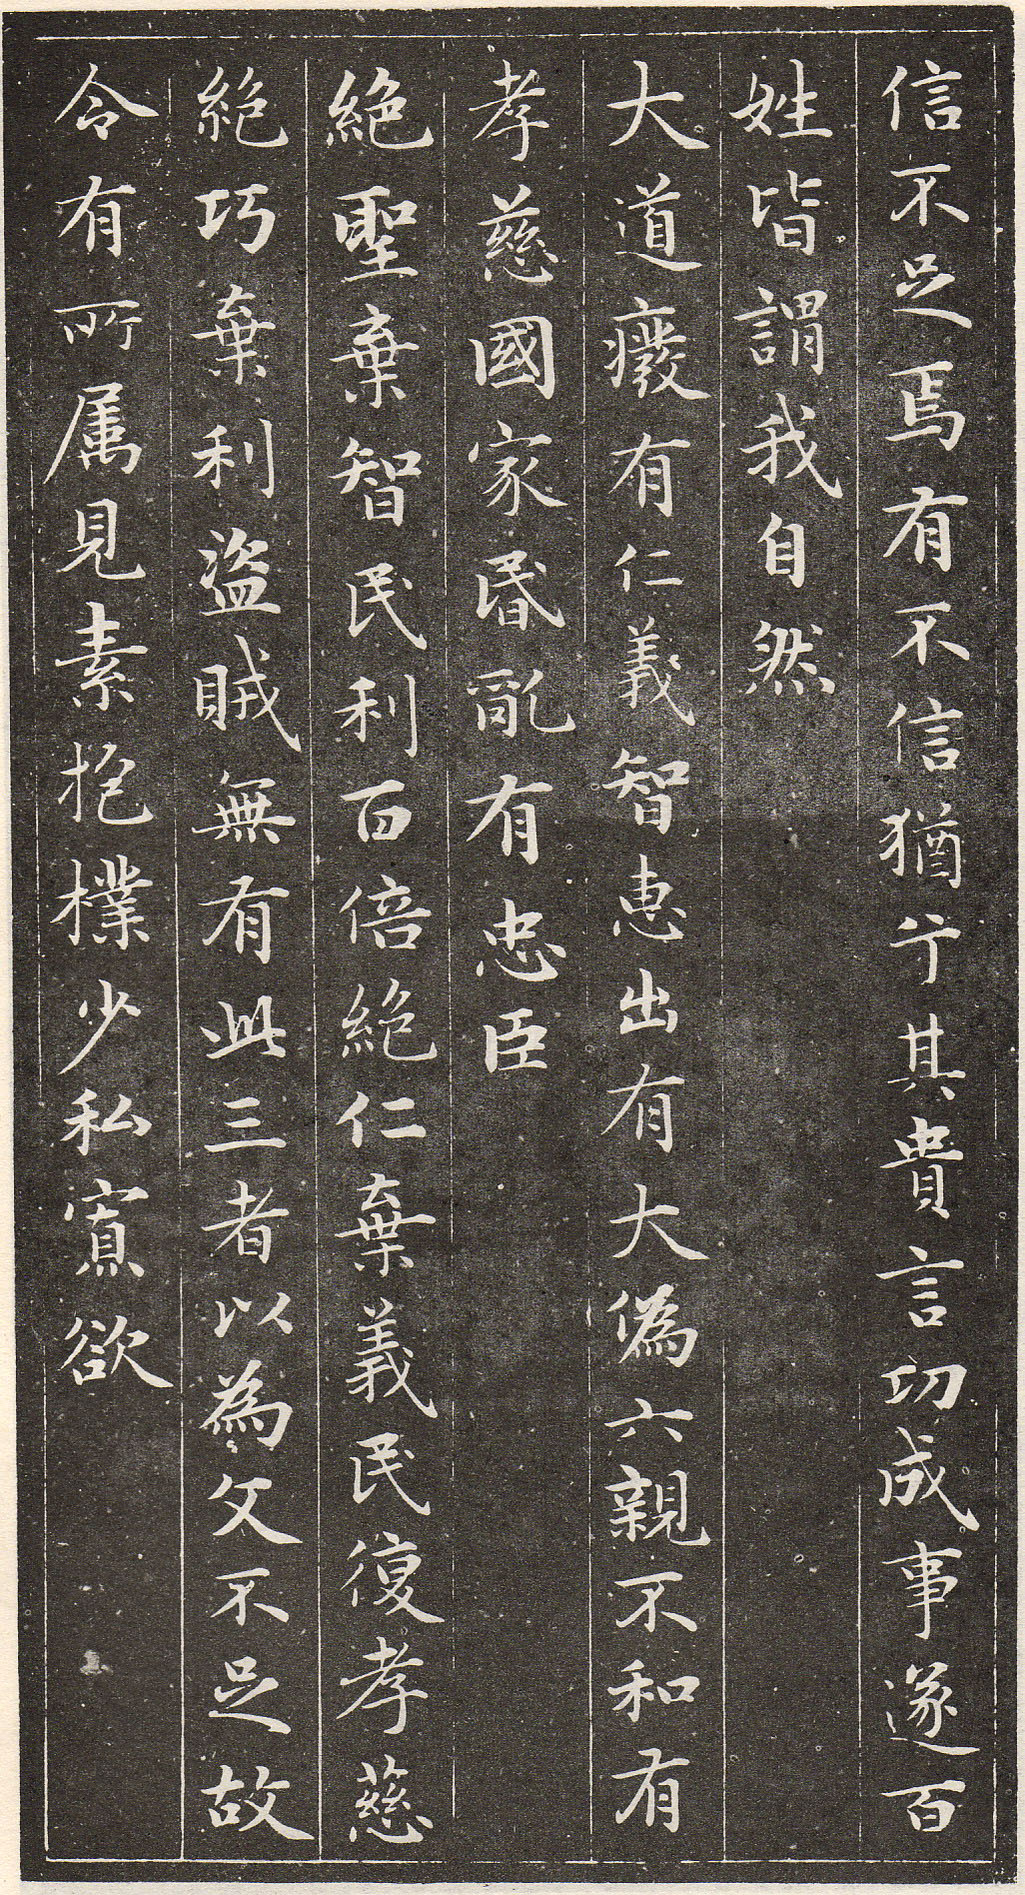 信不足焉有不信猶兮其貴言功成事遂百
姓皆謂我自然
大道癈有仁義智惠出有大偽六親不和有
孝慈國家昬亂有忠臣
絶聖棄智民利百倍絶仁棄義民復孝慈
絶巧棄利盜賊無有此三者以為文不足故
令有所属見素抱樸少私寡欲